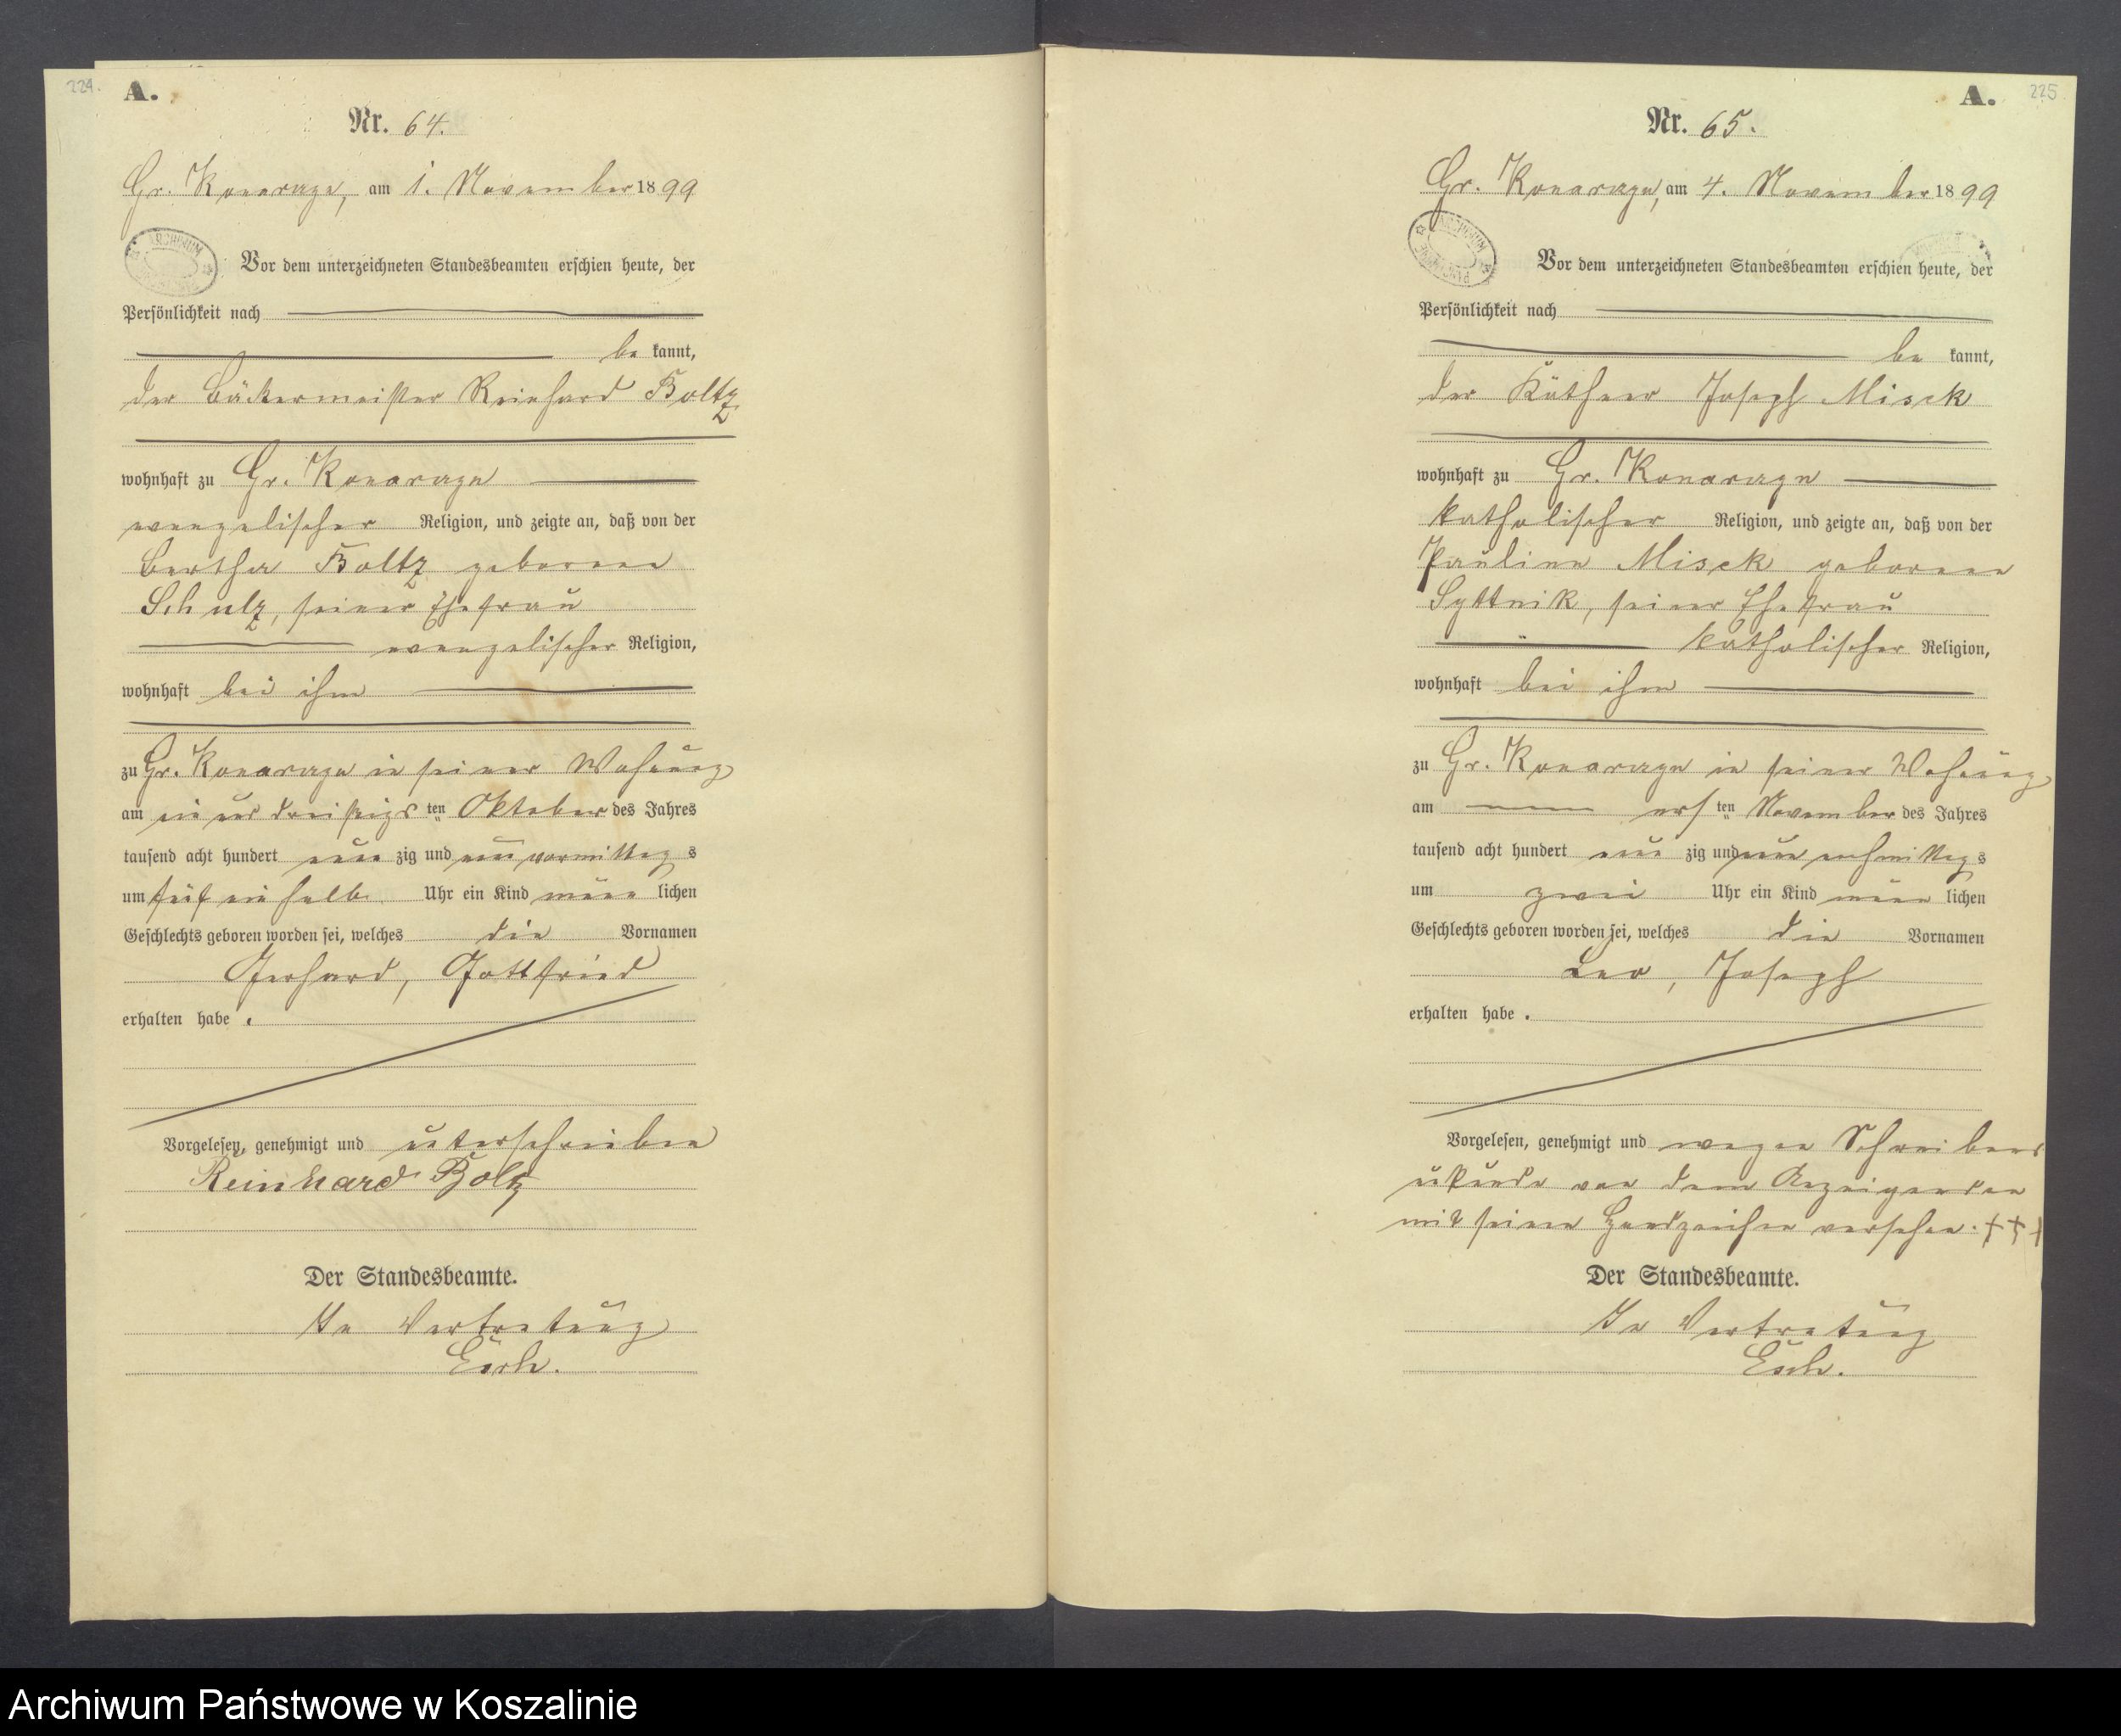 224.
A.
Nr. 64.
Gr. Konarzyn, am 1. November 1899
ARCHIWUM
Vor dem unterzeichneten Standesbeamten erschien heute, der
Persönlichkeit nach
be kannt,
der Bäckermeister Reinhard Boltz
wohnhaft zu Gr. Konarzyn
evangelischer Religion, und zeigte an, daß von der
Bertha Boltz geborene
Schulz, seiner Ehefrau
evangelischer Religion,
wohnhaft bei ihm
zu Gr. Konarzyn in seiner Wohnung
am ein und dreißigsten Oktober des Jahres
tausend acht hundert neun zig und neun vormittags
um fünf ein halb Uhr ein Kind männ lichen
Geschlechts geboren worden sei, welches die Vornamen
Gerhard, Gottfried
erhalten habe.
Vorgelesen, genehmigt und unterschrieben
Reinhard Boltz
Der Standesbeamte.
In Vertretung
Esch.
A.
225
Nr. 65.
Gr. Konarzyn, am 4. November 1899
ARCHIWUM
Vor dem unterzeichneten Standesbeamten erschien heute, der
Persönlichkeit nach
be kannt,
der Käthner Joseph Misck
wohnhaft zu Gr. Konarzyn
katholischer Religion, und zeigte an, daß von der
Pauline Misck geborene
Syttnik, seiner Ehefrau
katholischer Religion,
wohnhaft bei ihm
zu Gr. Konarzyn in seiner Wohnung
am ersten November des Jahres
tausend acht hundert neun zig und neun nachmittags
um zwei Uhr ein Kind männ lichen
Geschlechts geboren worden sei, welches die Vornamen
Leo, Joseph
erhalten habe.
Vorgelesen, genehmigt und wegen Schreibens
unkunde von dem Anzeigenden
mit seinem Handzeichen versehen. + + +
Der Standesbeamte.
In Vertretung
Esch.
Archiwum Państwowe w Koszalinie